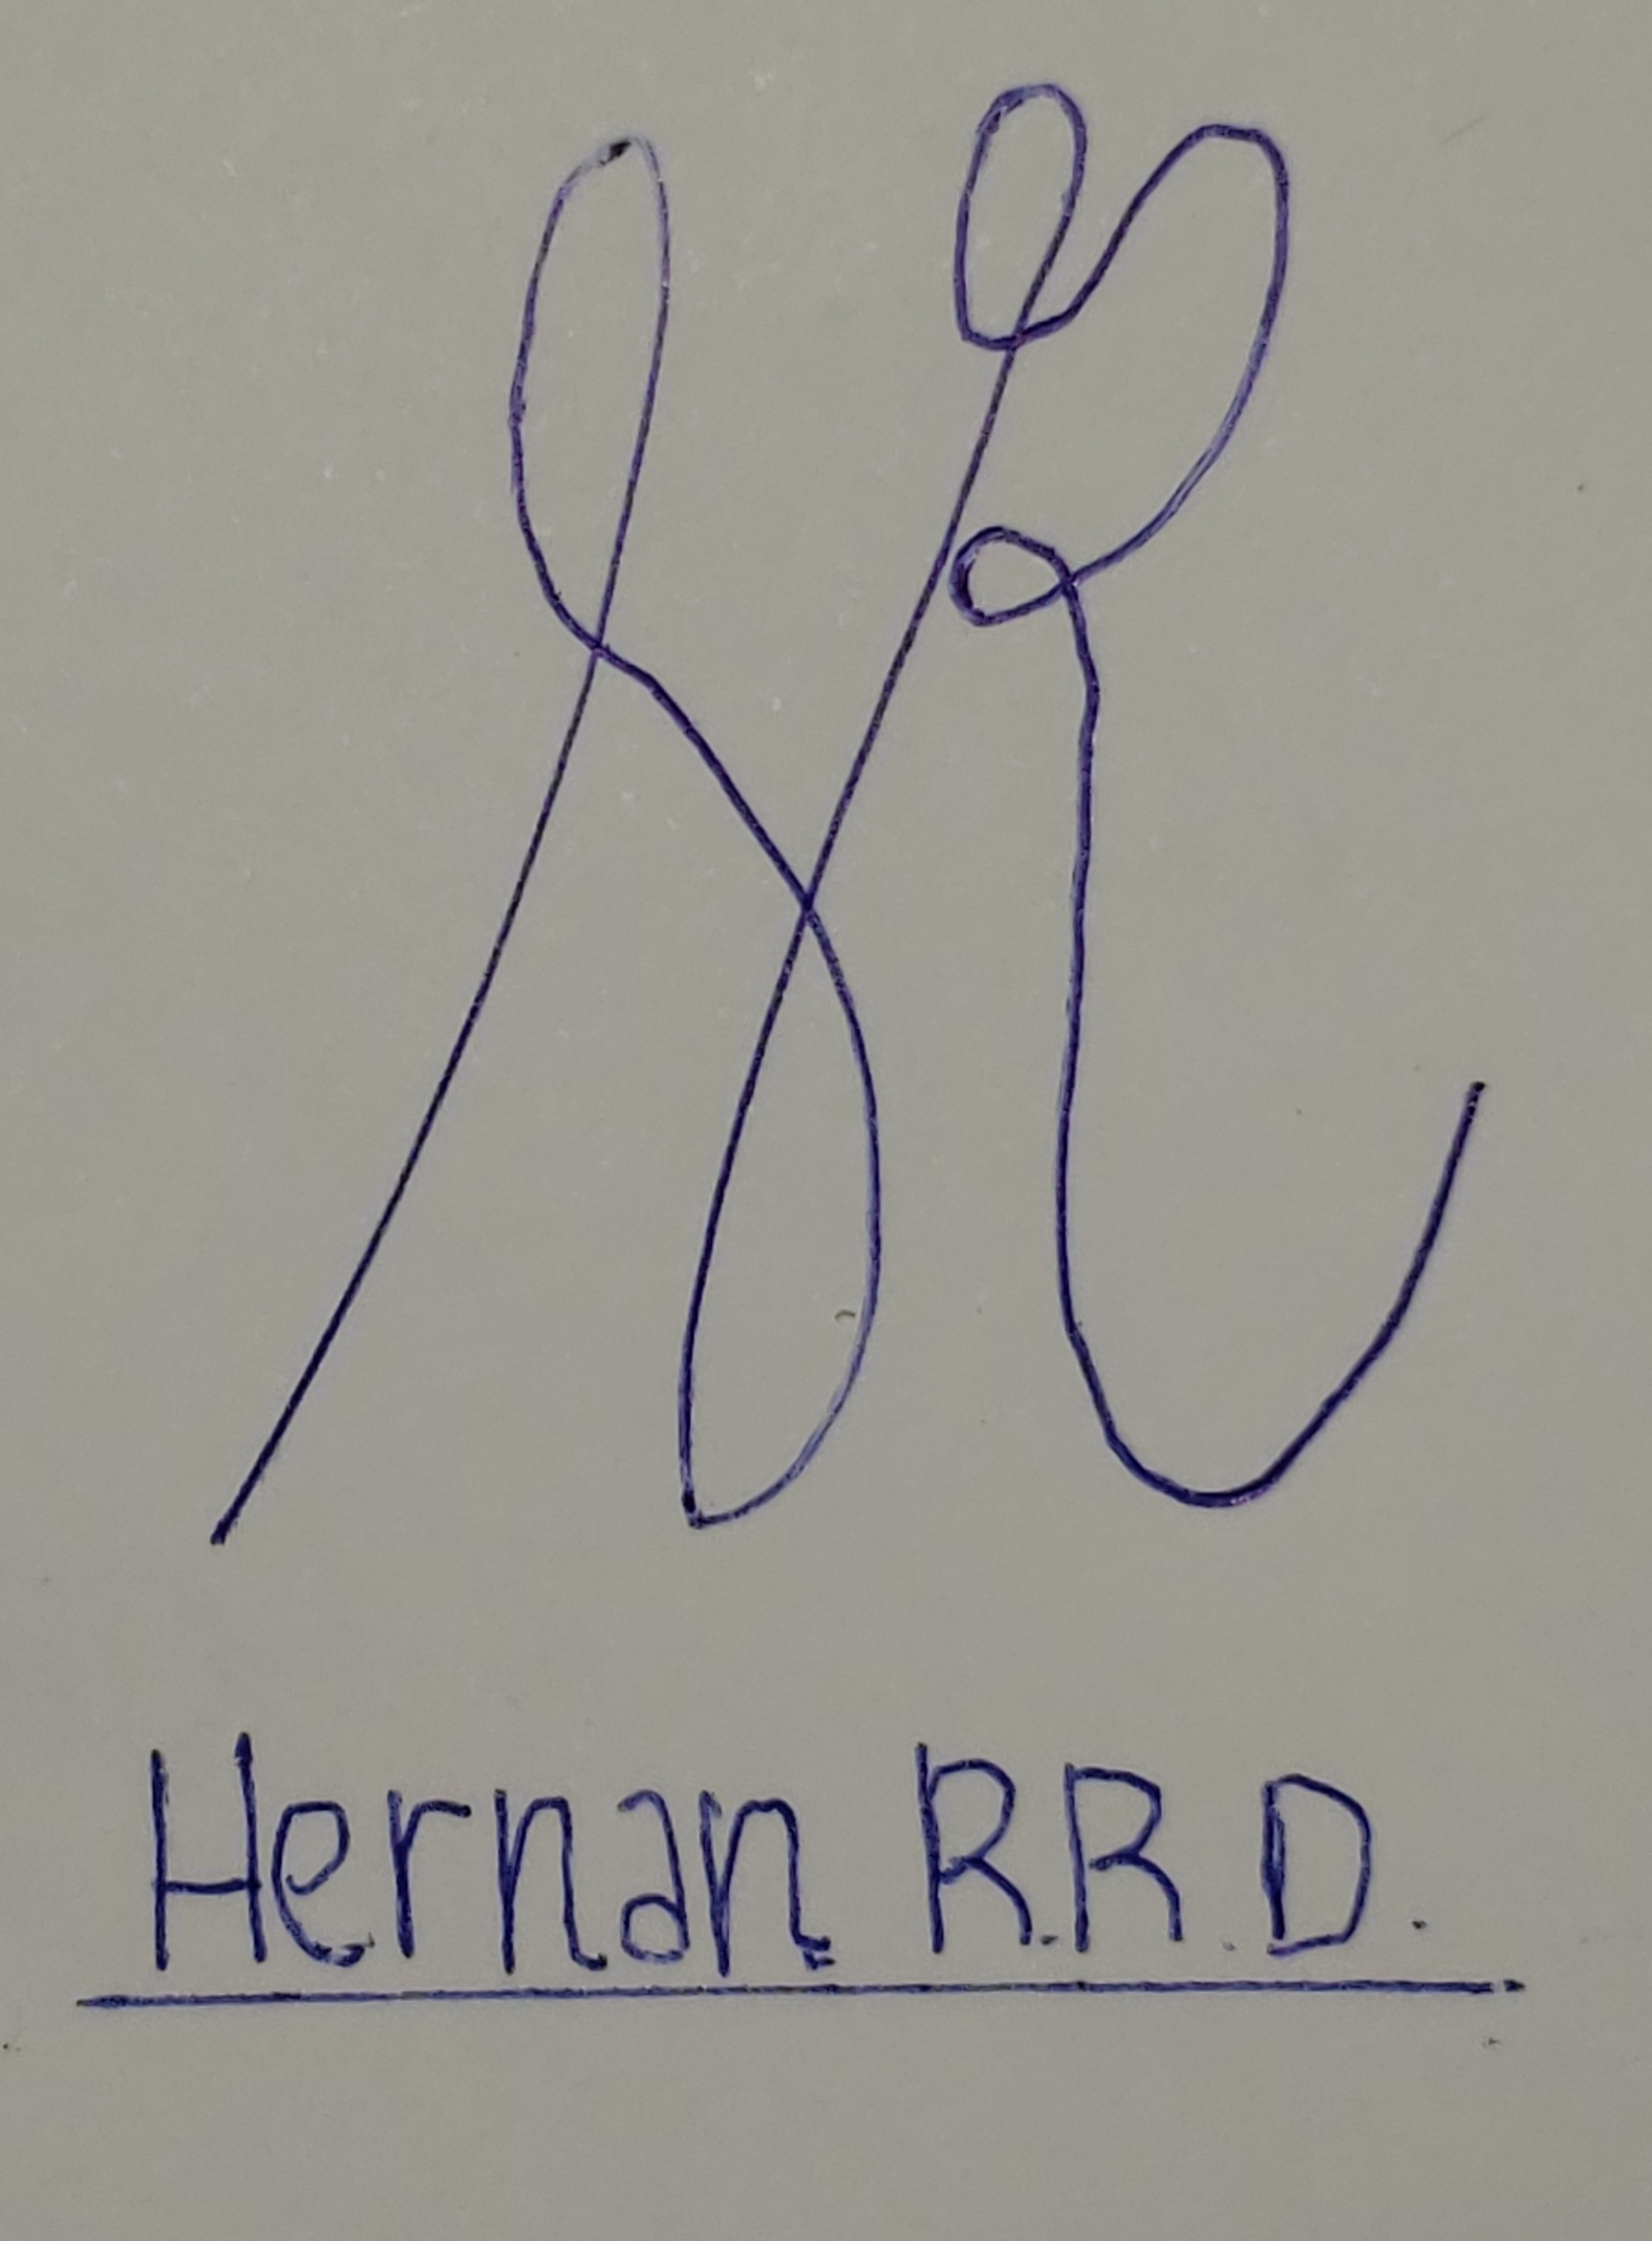 HR
Hernan R.R.D.